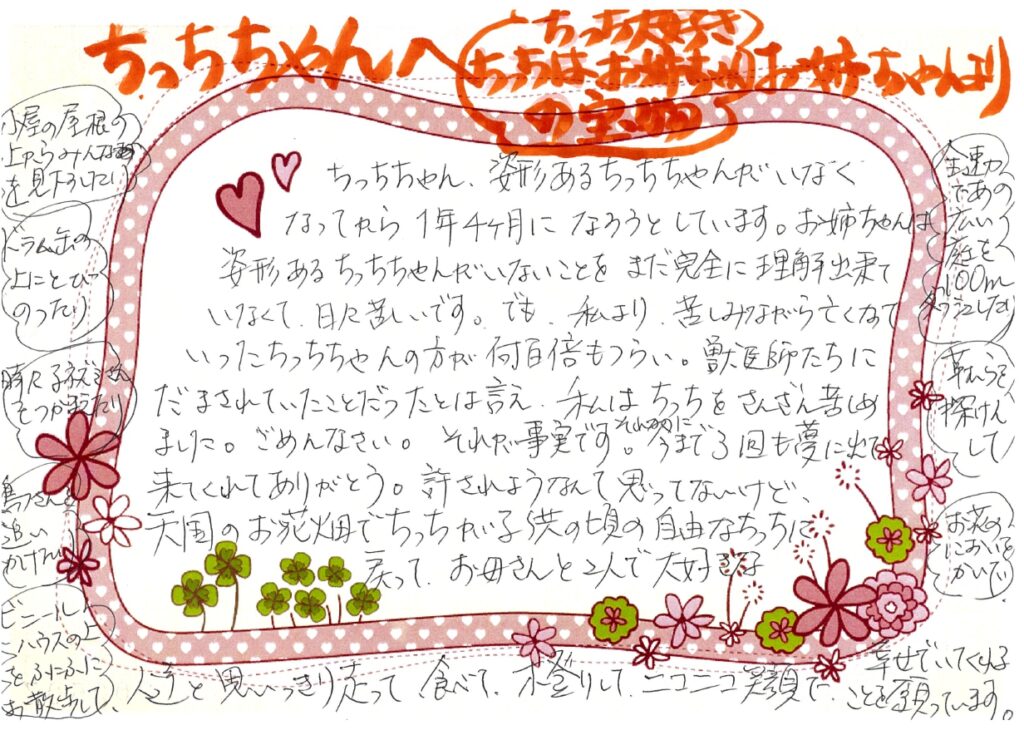 ちっちちゃんへ
ちっち大好き
ちっちはお姉ちゃん
の宝物
お姉ちゃんより
ちっちちゃん、姿形あるちっちちゃんがいなく
なってから1年4ヶ月になろうとしています。お姉ちゃんは、
姿形あるちっちちゃんがいないことをまだ完全に理解出来て
いなくて、日々苦しいです。でも、私より、苦しみながら亡くなって
いったちっちちゃんの方が何百倍もつらい。獣医師たちに
だまされていたことだったとは言え、私はちっちをさんざん苦しめ
ました。ごめんなさい。それが事実です。それなのに今まで3回も夢に出て
来てくれてありがとう。許されようなんて思ってないけど、
天国のお花畑でちっちが子供の頃の自由なちっちに
戻って、お母さんと2人で大好きな
人達と思いっきり走って食べて、木登りして、ニコニコ笑顔で
幸せでいてくれる
ことを願っています。
小屋の屋根の
上からみんな
を見下ろしたり
ドラム缶の
上にとび
のったり
時々ネズミさん
をつかまえたり
鳥さんを
追い
かけたり
ビニール
ハウスの上
をふにふに
お散歩して、
全速力
であの
広い
庭を
100m
ダッシュしたり
草むらを
探けん
して
お花の
においを
かいで